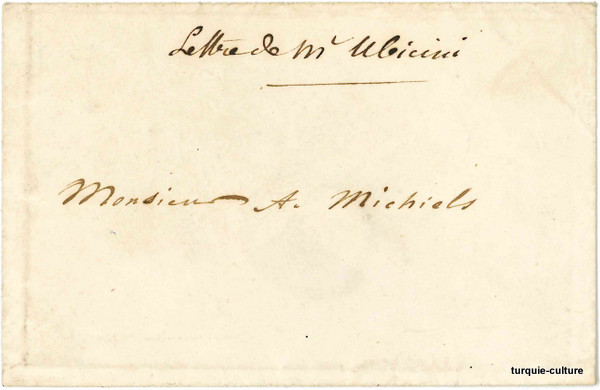 Lettre de Mr Ubicini
Monsieur A. Michiels
turquie-culture